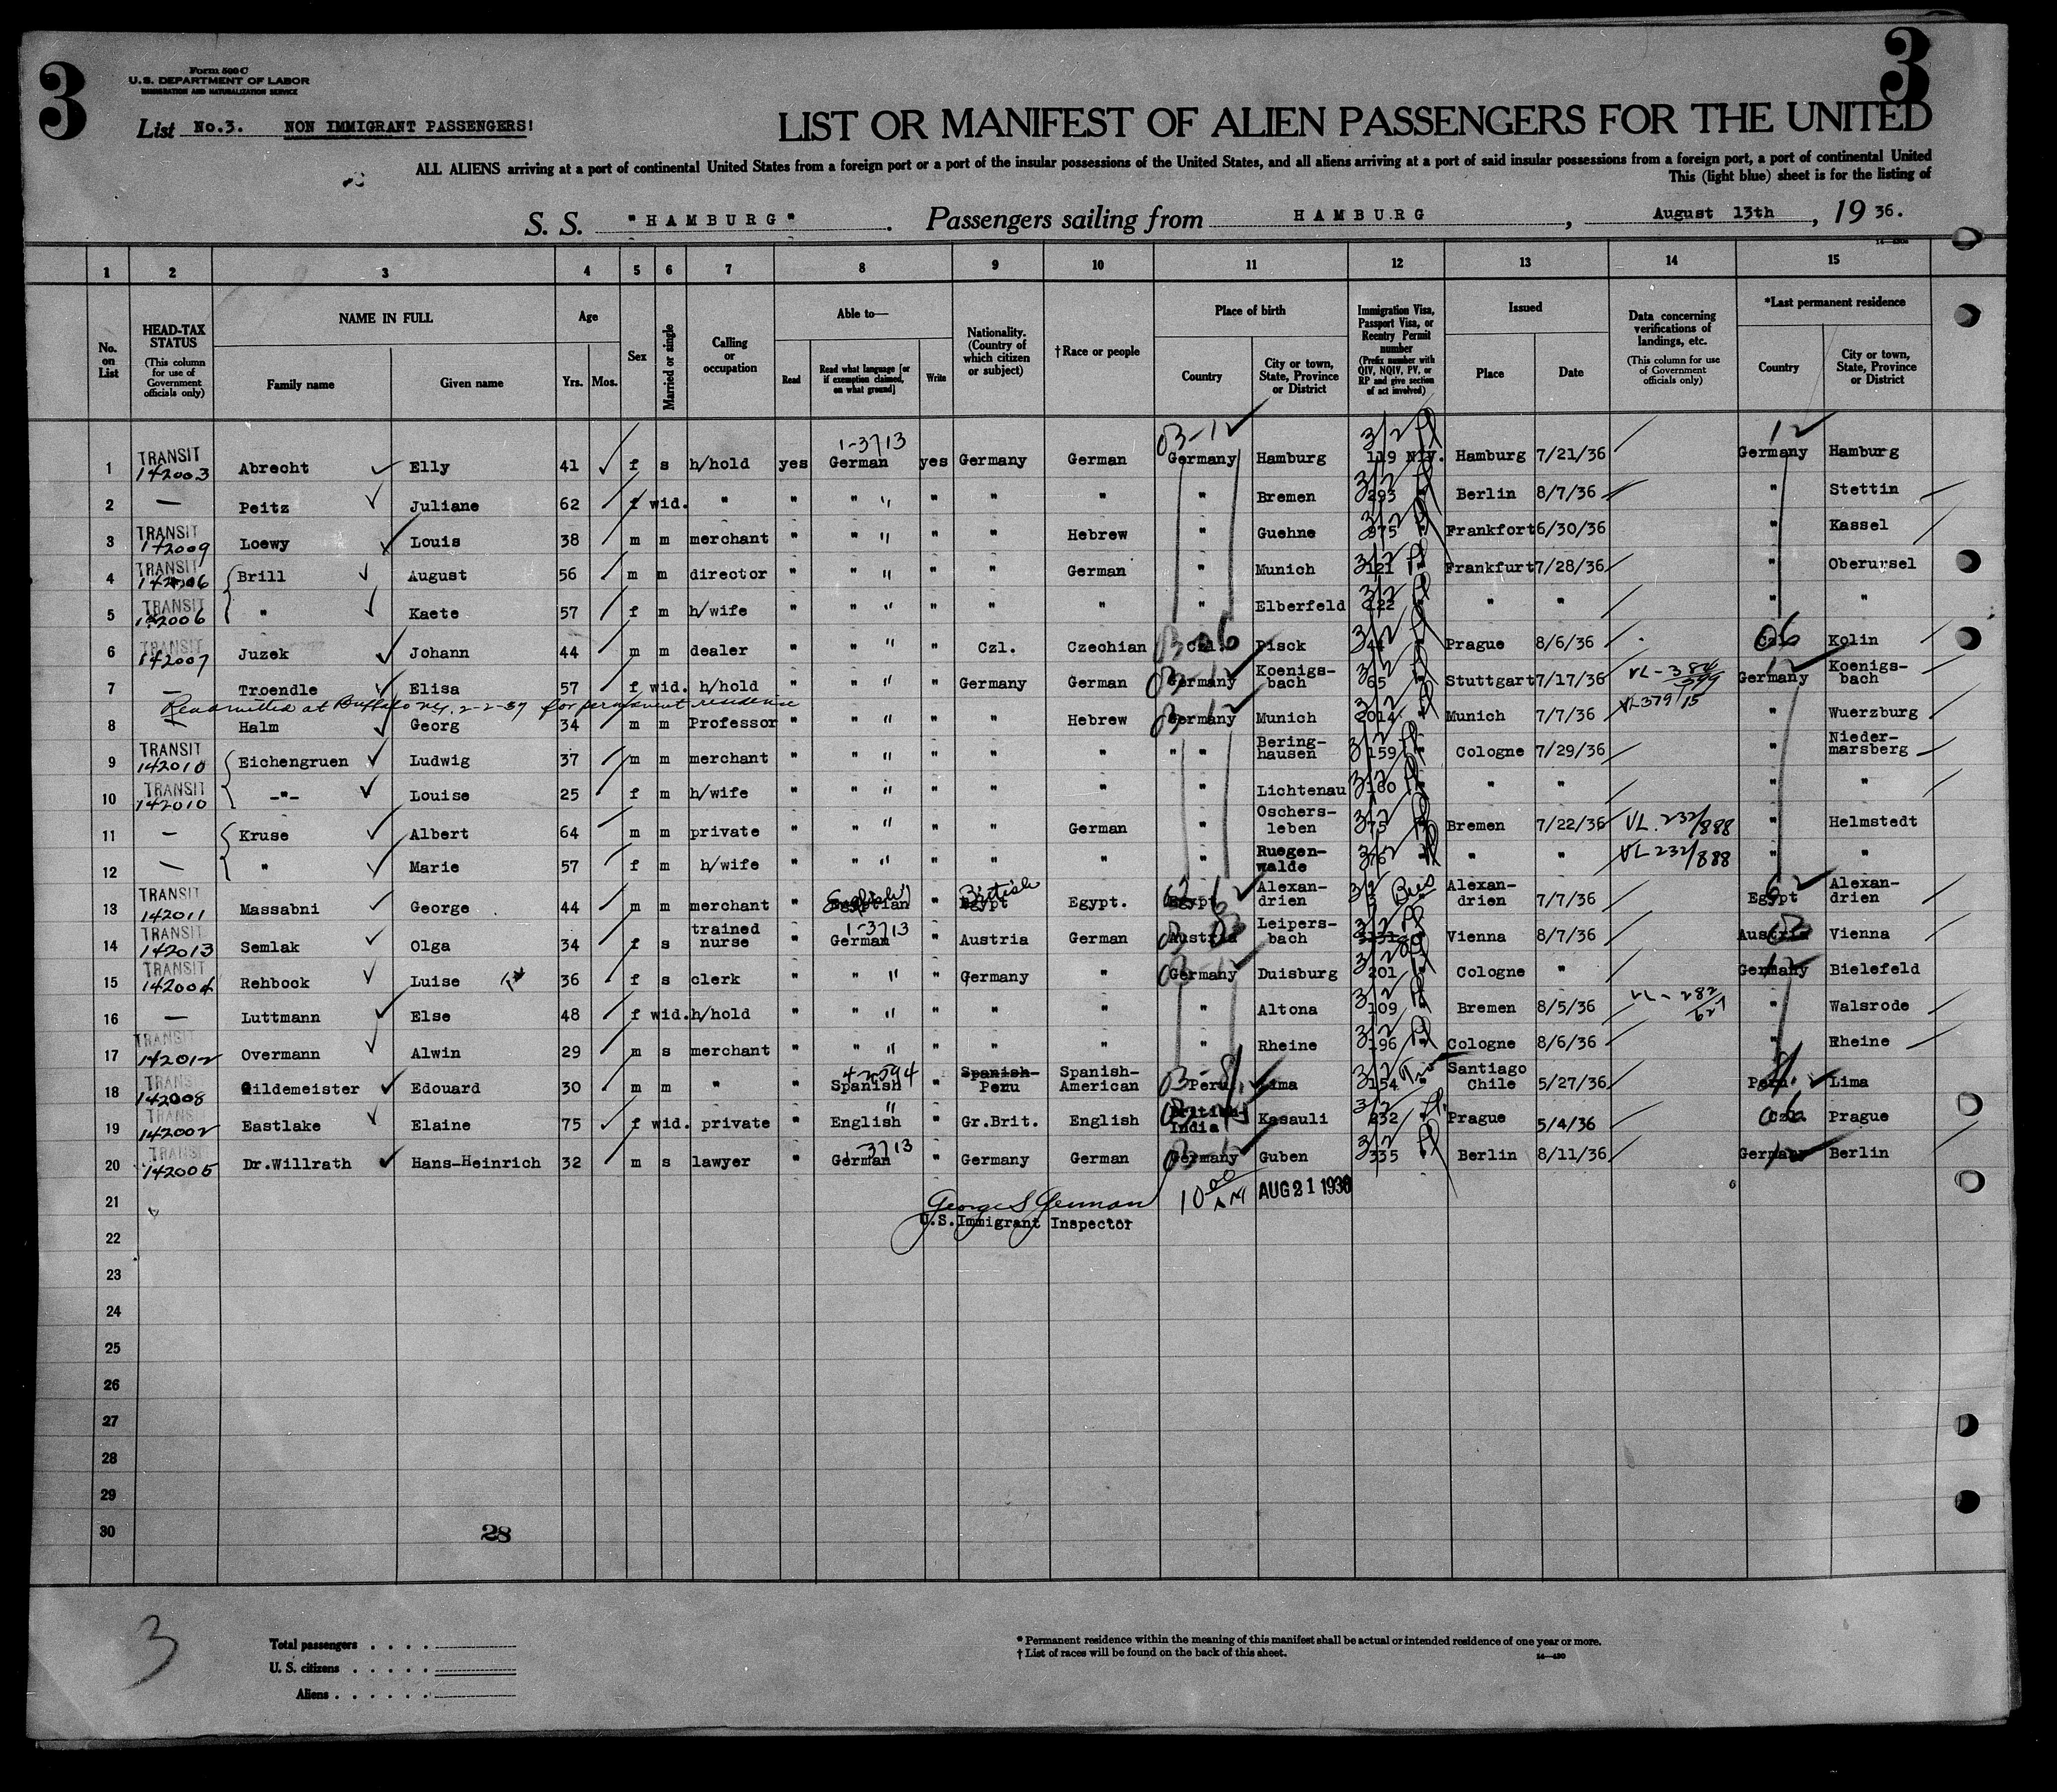 3
3
Form 500 C
U. S. DEPARTMENT OF LABOR
IMMIGRATION AND NATURALIZATION SERVICE
List No.3. NON IMMIGRANT PASSENGERS!
LIST OR MANIFEST OF ALIEN PASSENGERS FOR THE UNITED
ALL ALIENS arriving at a port of continental United States from a foreign port or a port of the insular possessions of the United States, and all aliens arriving at a port of said insular possessions from a foreign port, a port of continental United
This (light blue) sheet is for the listing of
S. S. "HAMBURG". Passengers sailing from HAMBURG, August 13th, 19 36.
1 2 3 4 5 6 7 8 9 10 11 12 13 14 15
No. on List
HEAD-TAX STATUS (This column for use of Government officials only)
NAME IN FULL Family name Given name
Age Yrs. Mos.
Sex
Married or single
Calling or occupation
Able to— Read Read what language [or if exemption claimed, on what ground] Write
Nationality. (Country of which citizen or subject)
†Race or people
Place of birth Country City or town, State, Province or District
Immigration Visa, Passport Visa, or Reentry Permit number (Prefix number with QIV, NQIV, PV, or RP and give section of act involved)
Issued Place Date
Data concerning verifications of landings, etc. (This column for use of Government officials only)
*Last permanent residence Country City or town, State, Province or District
1 TRANSIT 142003 Abrecht Elly 41 f s h/hold yes 1-3713 German yes Germany German 03-12 Germany Hamburg 3/2 119 NIV. Hamburg 7/21/36 12 Germany Hamburg
2 — Peitz Juliane 62 f wid. " " " " " " " " Bremen 3/2 293 Berlin 8/7/36 " Stettin
3 TRANSIT 142009 Loewy Louis 38 m m merchant " " " " " Hebrew " Guehne 3/2 Frankfort 6/30/36 " Kassel
4 TRANSIT 142006 Brill August 56 m m director " " " " " German " Munich 3/2 121 Frankfurt 7/28/36 " Oberursel
5 TRANSIT 142006 " Kaete 57 f m h/wife " " " " " " " Elberfeld 3/2 122 " " " "
6 TRANSIT 142007 Juzek Johann 44 m m dealer " " " " Czl. Czechian 03 06 Czl. Pisck 3/2 44 Prague 8/6/36 06 Czl. Kolin
7 — Troendle Elisa 57 f wid. h/hold " " " " Germany German 03-12 Germany Koenigs-bach 3/2 65 Stuttgart 7/17/36 VL-384/399 12 Germany Koenigs-bach
Readmitted at Buffalo N.Y. 2-2-37 for permanent residence
8 — Halm Georg 34 m m Professor " " " " " Hebrew 03-12 Germany Munich 3/2 2014 Munich 7/7/36 VL379/15 " Wuerzburg
9 TRANSIT 142010 Eichengruen Ludwig 37 m m merchant " " " " " " " " Bering-hausen 3/2 159 Cologne 7/29/36 " Nieder-marsberg
10 TRANSIT 142010 -"- Louise 25 f m h/wife " " " " " " " Lichtenau 3/2 160 " " " "
11 — Kruse Albert 64 m m private " " " " " German " Oschers-leben 3/2 75 Bremen 7/22/36 VL. 232/888 " Helmstedt
12 — " Marie 57 f m h/wife " " " " " " " Ruegen-walde 3/2 76 " " VL 232/888 " "
13 TRANSIT 142011 Massabni George 44 m m merchant " English " British Egypt Egypt. Egypt Alexan-drien 3/2 Alexan-drien 7/7/36 Egypt Alexan-drien
14 TRANSIT 142013 Semlak Olga 34 f s trained nurse " 1-3713 German " Austria German 03 Austria Leipers-bach 3/2 Vienna 8/7/36 03 Austria Vienna
15 TRANSIT 142004 Rehbock Luise 36 f s clerk " " " " Germany " 03 Germany Duisburg 3/2 201 Cologne " 12 Germany Bielefeld
16 — Luttmann Else 48 f wid. h/hold " " " " " " " Altona 3/2 109 Bremen 8/5/36 VL-282/627 " Walsrode
17 TRANSIT 142012 Overmann Alwin 29 m s merchant " " " " " " " Rheine 3/2 196 Cologne 8/6/36 " Rheine
18 TRANSI 142008 Gildemeister Edouard 30 m m " " Spanish " Spanish- Peru Spanish-American 03-81 Peru Lima 3/2 154 Santiago Chile 5/27/36 81 Peru Lima
19 TRANSI 142002 Eastlake Elaine 75 f wid. private " " English " Gr.Brit. English British-India Kasauli 3/2 232 Prague 5/4/36 06 Czl. Prague
20 TRANSI 142005 Dr.Willrath Hans-Heinrich 32 m s lawyer " -3713 German " Germany German 03- Germany Guben 3/2 335 Berlin 8/11/36 12 Germany Berlin
21 George S German 10 00 AM AUG 21 1936
U.S.Immigrant Inspector
22
23
24
25
26
27
28
29
30
28
3
Total passengers . . . .
U. S. citizens . . . . .
Aliens . . . . . .
* Permanent residence within the meaning of this manifest shall be actual or intended residence of one year or more.
† List of races will be found on the back of this sheet.
14—430